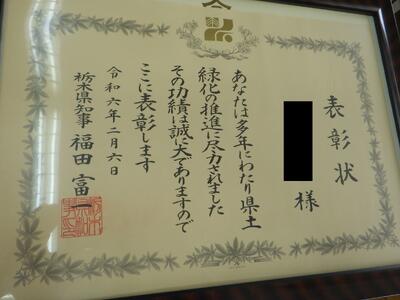 表彰状
様
あなたは多年にわたり県土
緑化の推進に尽力されました
その功績は誠に大でありますので
ここに表彰します
令和六年二月六日
栃木県知事 福田富一